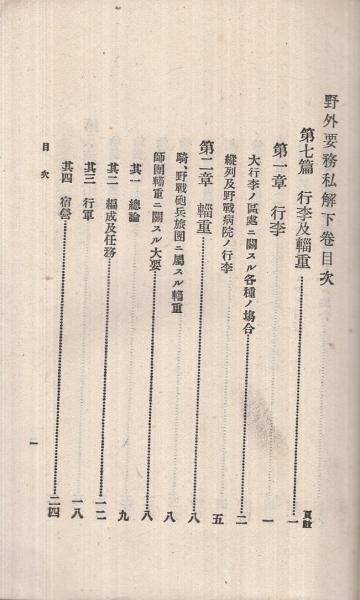 野外要務私解下卷目次
頁數
第七篇 行李及輜重 一
第一章 行李 一
大行李ノ區處ニ關スル各種ノ場合 二
縱列及野戰病院ノ行李 五
第二章 輜重 八
騎、野戰砲兵旅團ニ屬スル輜重 八
師團輜重ニ關スル大要 八
其一 總論 九
其二 編成及任務 一二
其三 行軍 一八
其四 宿營 二四
目次
一